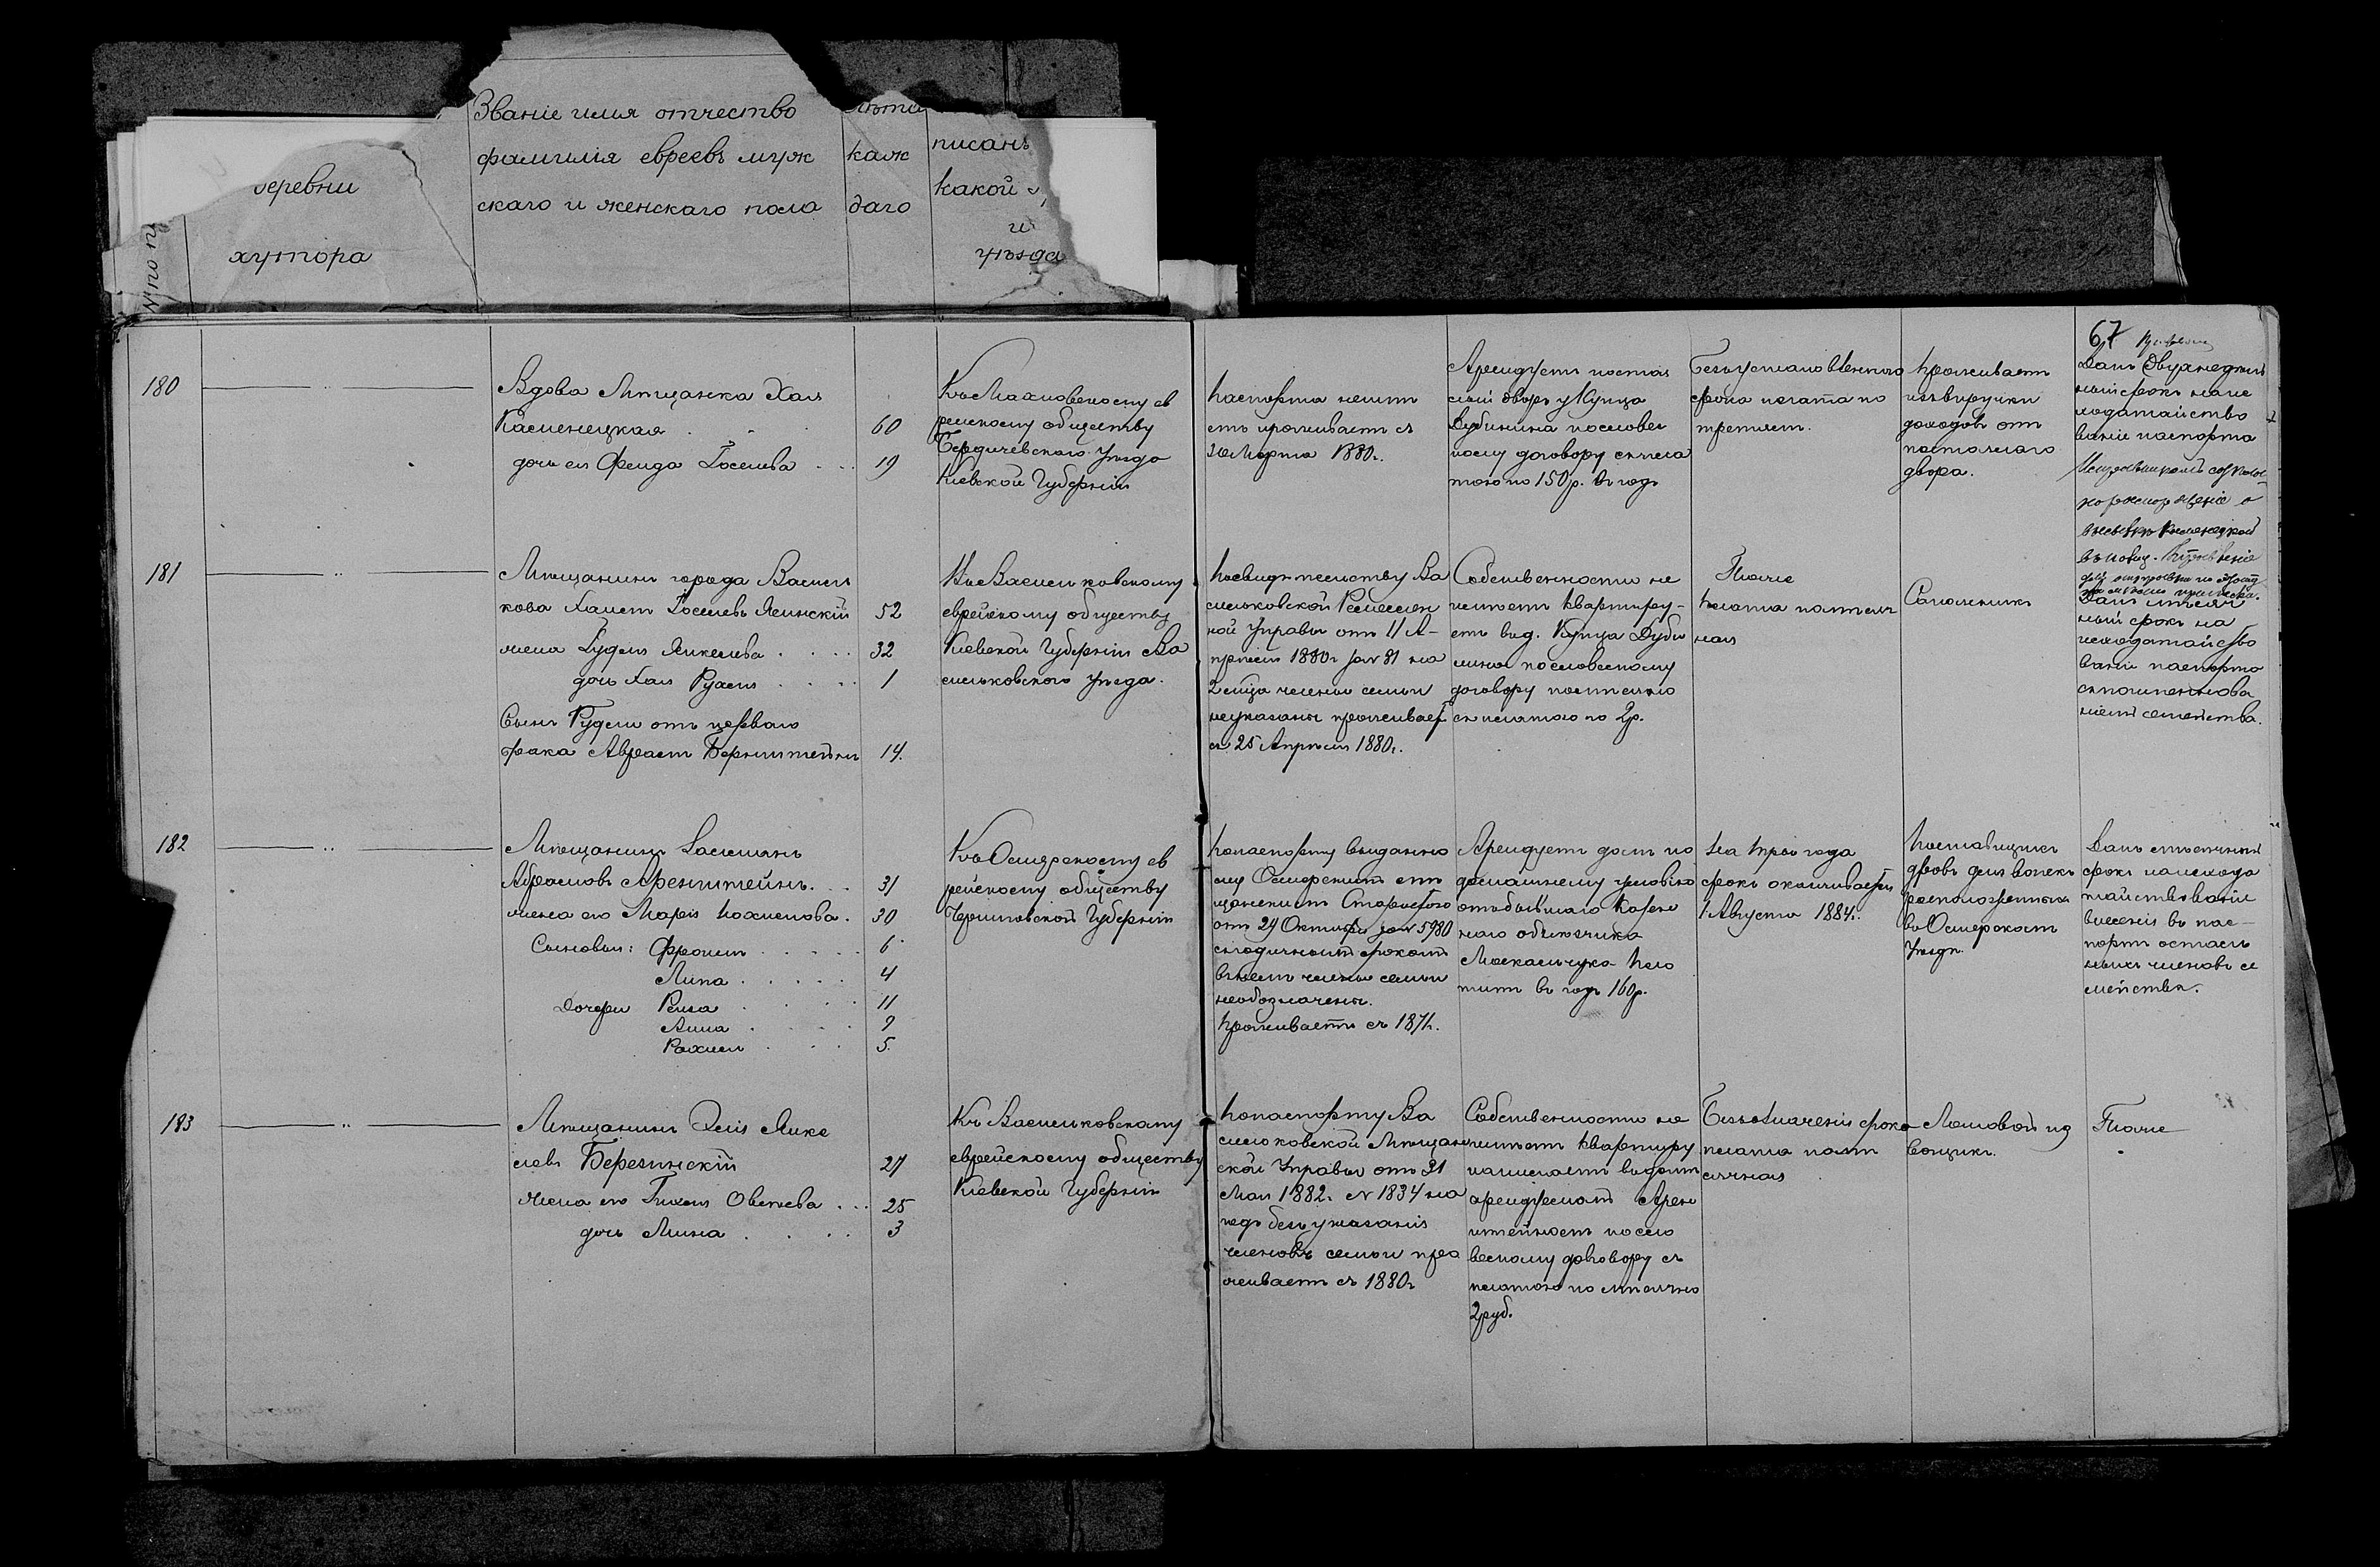 Званіе имя отчество
фамилія евреевъ муж
скаго и женскаго пола
Лѣта
каж
даго
писанъ
какой
и
уѣзда
деревни
хутора
№ по
67
180
Вдова Мѣщанка Хая
Каменецкая
60
дочь ея Фейга Іоселева
19
Къ Махновскому ев
рейскому обществу
Бердичевского Уѣзда
Кіевской Губерніи
Паспорта неимѣ
етъ проживаетъ съ
Марта 1880г.
Арендуетъ постоя
лый дворъ у Купца
Дубинина пословес
ному договору съ пла
тою по 150 р. въ годъ
Безъ установленного
срока плата по
третямъ.
Проживаетъ
изъ выручки
доходовъ отъ
постоялаго
двора.
Данъ Двухнедѣль
ный срокъ на ис
ходатайство
ваніе паспорта
181
Мѣщанинъ города Василь
кова Хаимъ Іоселевъ Ясинскій
52
жена Гудея Янкелева
32
дочь Хая Рухля
1
Сынъ Гудели отъ перваго
брака Авраамъ Бернштейнъ
14.
Къ Васильковскому
еврейскому обществу
Кіевской Губерніи Ва
сильковского Уѣзда.
По свидѣтельству Ва
сильковской Ремеслен
ной Управы отъ 11 А-
прѣля 1880г за № 81 на
2 м-ца члены семьи
неуказаны проживает
съ 25 Апрѣля 1880г.
Собственности не
имѣетъ квартиру-
етъ въ д. Купца Дуби
нина по словесному
договору помѣсячно
съ платою по 2р.
Тоже
Плата помѣсяч
ная
Сапожникъ
Данъ мѣсяч
ный срокъ на
исходатайство
ваніе паспорта
съ поименова
ніемъ семейства.
182
Мѣщанинъ Залманъ
Абрамовъ Аренштейнъ.
31
жена его Марія Нохимова.
30
Сыновья: Фроимъ
6
Липа
4
Дочери Рейза
11
Анна
9
Рахиль
5.
Къ Остерскому ев
рейскому обществу
Черниговской Губерніи
По паспорту выданно
му Остерскимъ мѣ
щанскимъ Старостою
отъ 24 Октября за № 5980
съ годичнымъ срокомъ
въ немъ члены семьи
необозначены.
Проживаетъ съ 1871г.
Арендуетъ домъ по
домашнему условію
отъ бывшаго Казен
наго объѣзчика
Москальчука пла
титъ въ годъ 160р.
На три года
срокъ оканчивается
1 Августа 1884г.
Поставщикъ
дровъ для войскъ
расположенныхъ
въ Остерскомъ
Уѣздѣ.
Данъ мѣсячный
срокъ на исхода
тайствованіе
внесенія въ пас-
портъ осталь
ныхъ членовъ се
мейства.
183
Мѣщанинъ Элія Янке
левъ Березинскій
27
жена его Овсеева
25
дочь Мина
3
Къ Васильковскому
еврейскому обществу
Кіевской Губерніи
По паспорту Ва
сильковской Мѣщан
ской Управы отъ 21
Мая 1882г. № 1834 на
годъ безъ указанія
членовъ семьи про
живаетъ съ 1880г
Собственности не
имѣетъ квартиру
нанимаетъ въ домѣ
арендуемомъ Арен
штейномъ по сло
весному договору съ
платою по мѣсячно
2 руб.
Безъ означенія срока
плата помѣ
сячная
Ломовой из
вощикъ.
Тоже